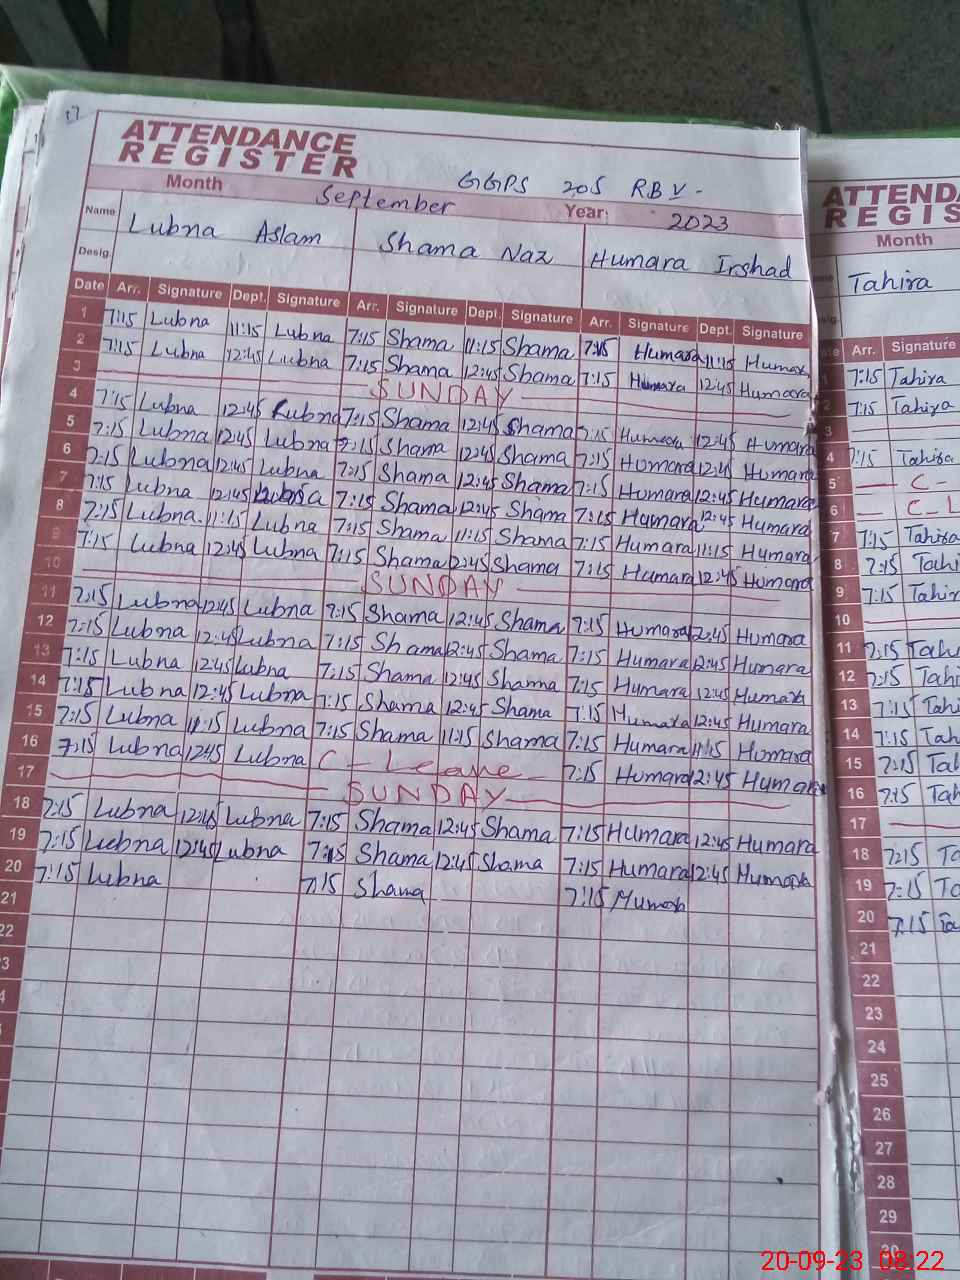 17
ATTENDANCE
REGISTER
GGPS 205 RB V-
Month September Year: 2023
Name Lubna Aslam Shama Naz Humara Irshad
Desig.
Date Arr. Signature Dept. Signature Arr. Signature Dept. Signature Arr. Signature Dept. Signature
1 7:15 Lubna 11:15 Lubna 7:15 Shama 11:15 Shama 7:15 Humara 11:15 Humara
2 7:15 Lubna 12:45 Lubna 7:15 Shama 12:45 Shama 7:15 Humara 12:45 Humara
3 SUNDAY
4 7:15 Lubna 12:45 Lubna 7:15 Shama 12:45 Shama 7:15 Humara 12:45 Humara
5 7:15 Lubna 12:45 Lubna 7:15 Shama 12:45 Shama 7:15 Humara 12:45 Humara
6 7:15 Lubna 12:45 Lubna 7:15 Shama 12:45 Shama 7:15 Humara 12:45 Humara
7 7:15 Lubna 12:45 Lubna 7:15 Shama 12:45 Shama 7:15 Humara 12:45 Humara
8 7:15 Lubna 11:15 Lubna 7:15 Shama 11:15 Shama 7:15 Humara 11:15 Humara
9 7:15 Lubna 12:45 Lubna 7:15 Shama 12:45 Shama 7:15 Humara 12:45 Humara
10 SUNDAY
11 7:15 Lubna 12:45 Lubna 7:15 Shama 12:45 Shama 7:15 Humara 12:45 Humara
12 7:15 Lubna 12:45 Lubna 7:15 Shama 12:45 Shama 7:15 Humara 12:45 Humara
13 7:15 Lubna 12:45 Lubna 7:15 Shama 12:45 Shama 7:15 Humara 12:45 Humara
14 7:15 Lubna 12:45 Lubna 7:15 Shama 12:45 Shama 7:15 Humara 12:45 Humara
15 7:15 Lubna 11:15 Lubna 7:15 Shama 11:15 Shama 7:15 Humara 11:15 Humara
16 7:15 Lubna 12:45 Lubna C-Leave- 7:15 Humara 12:45 Humara
17 SUNDAY
18 7:15 Lubna 12:45 Lubna 7:15 Shama 12:45 Shama 7:15 Humara 12:45 Humara
19 7:15 Lubna 12:45 Lubna 7:15 Shama 12:45 Shama 7:15 Humara 12:45 Humara
20 7:15 Lubna 7:15 Shama 7:15 Humara
21
22
ATTENDA
REGIS
Month
Tahira
Arr. Signature
7:15 Tahira
7:15 Tahira
3
4 7:15 Tahira
5 C-
6 C-L
7 7:15 Tahira
8 7:15 Tahi
9 7:15 Tahir
10
11 7:15 Tah
12 7:15 Tahi
13 7:15 Tahi
14 7:15 Tah
15 7:15 Tal
16 7:15 Tah
17
18 7:15 Ta
19 7:15 Ta
20 7:15 Ta
21
22
23
24
25
26
27
28
29
30
20-09-23 08:22